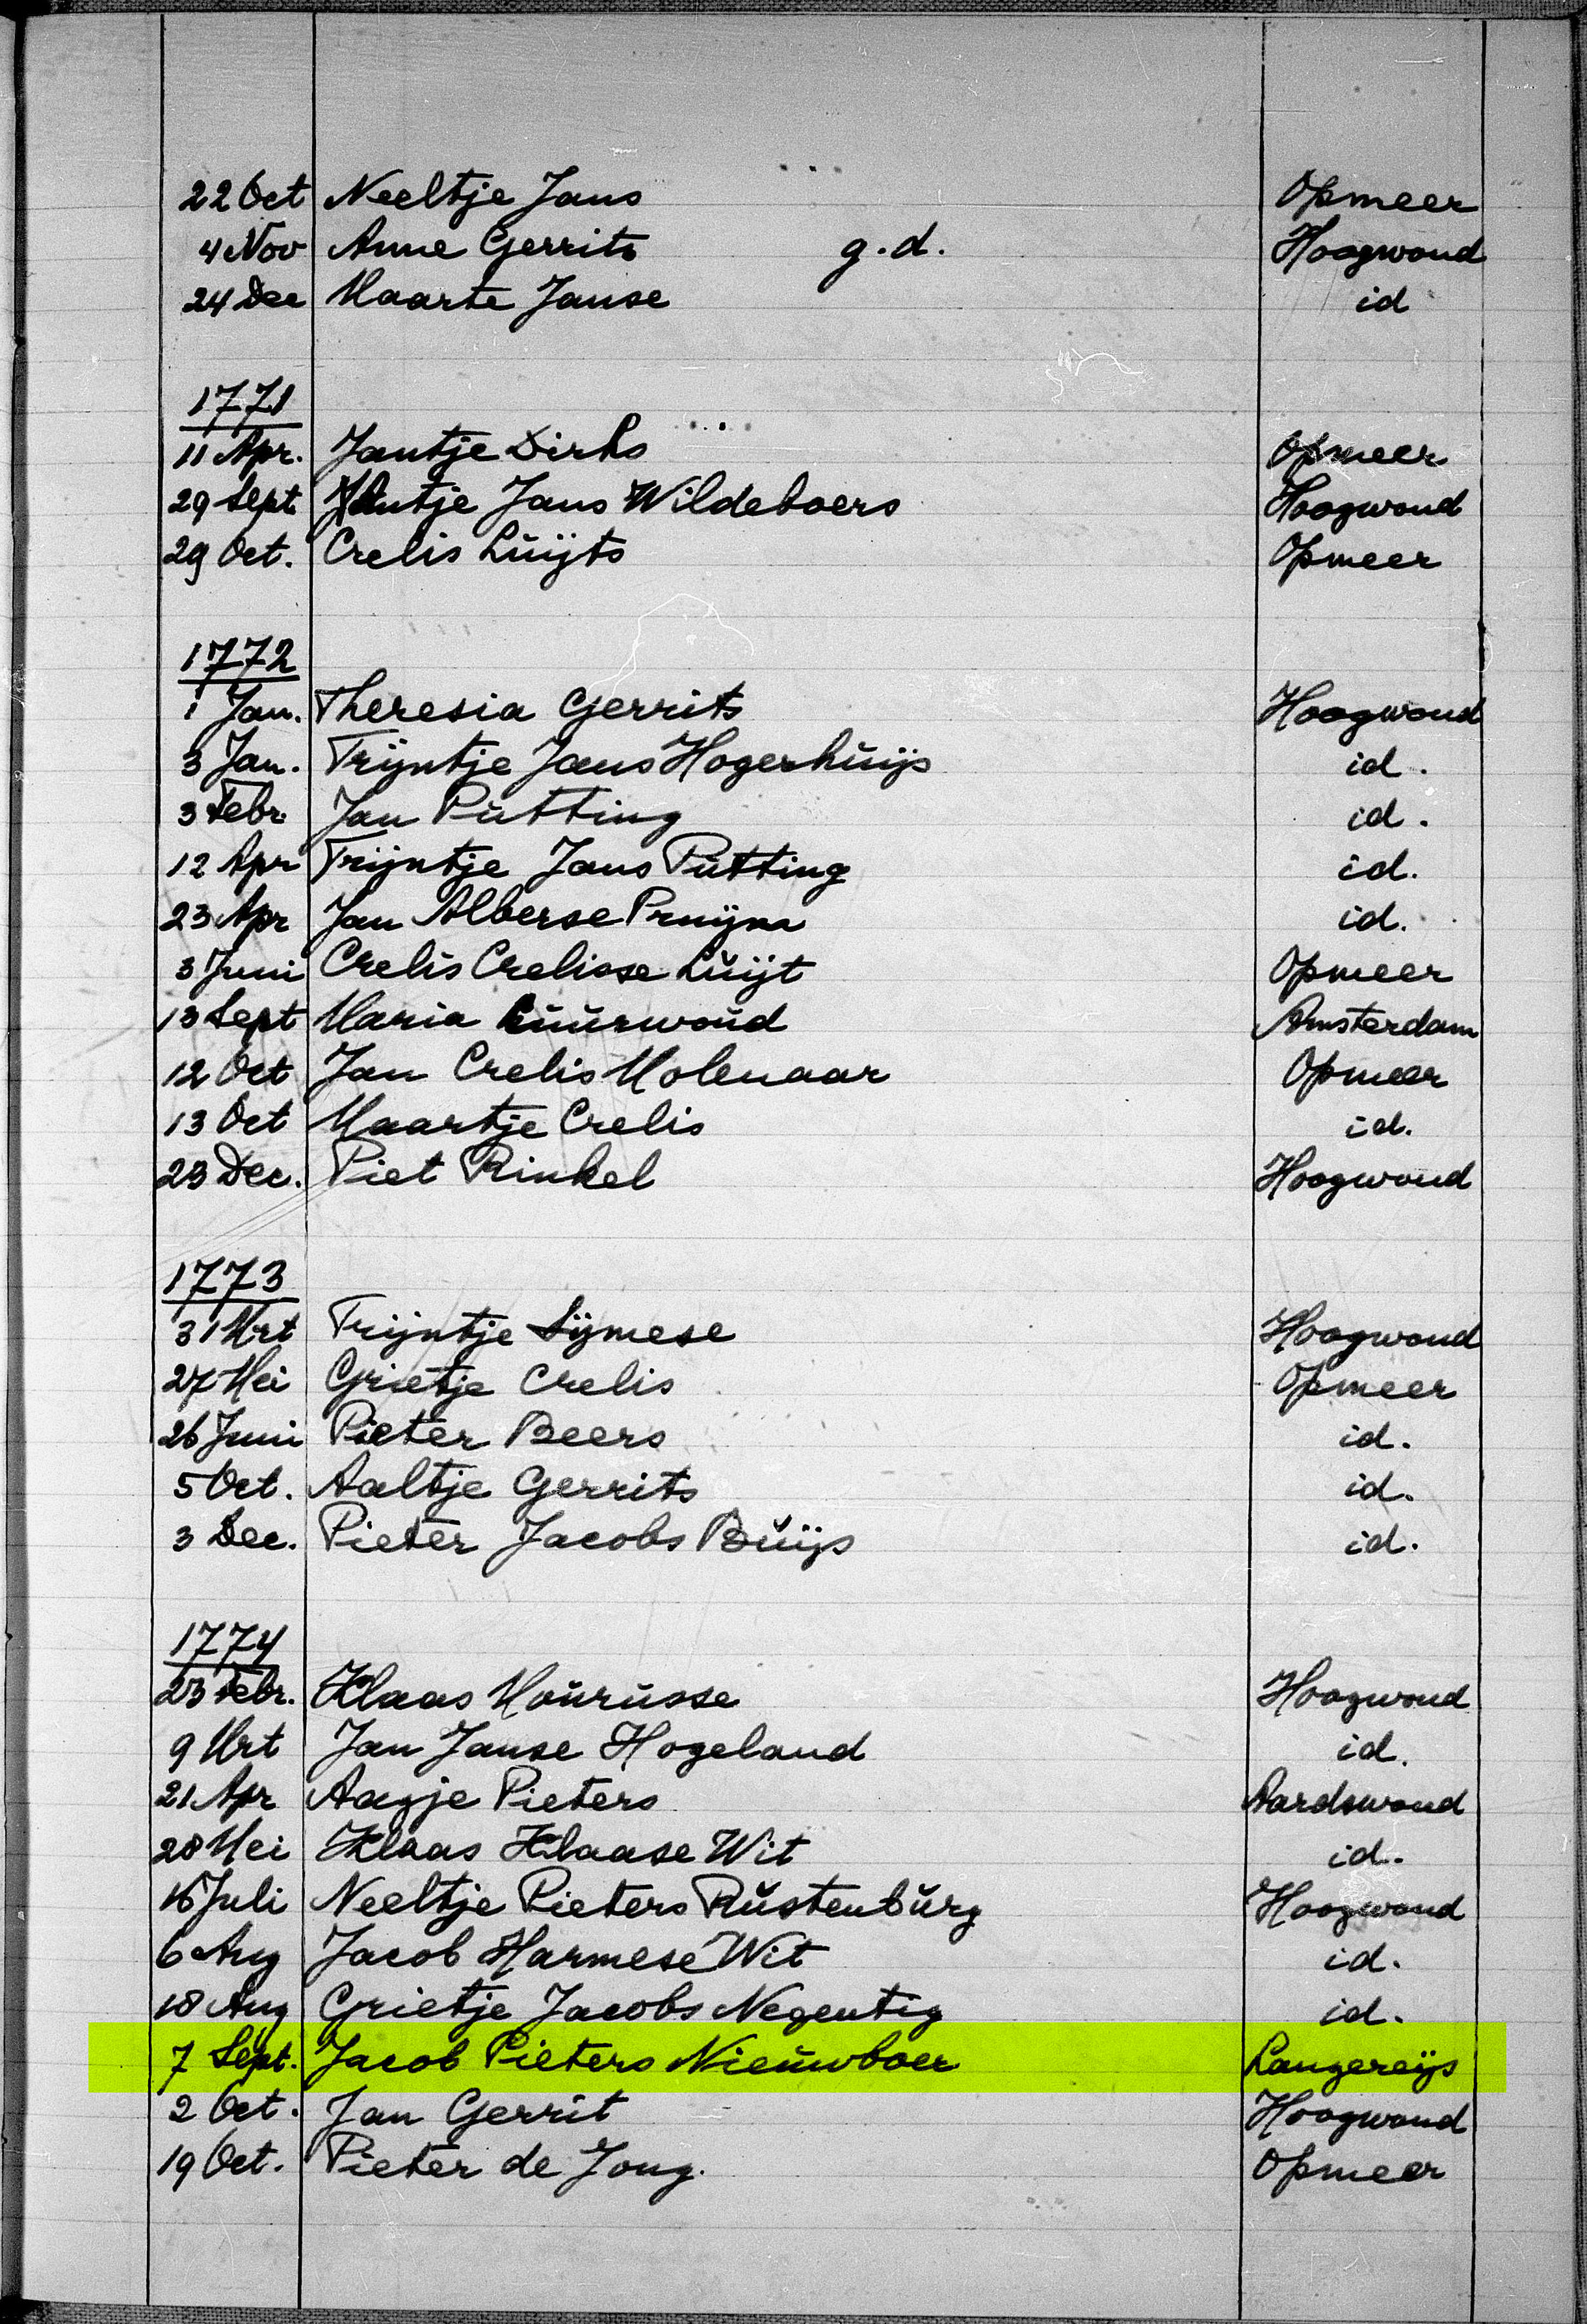 22 Oct Neeltje Jans Opmeer
4 Nov Anne Gerrits g.d. Hoogwoud
24 Dec Maarte Janse id
1771
11 Apr. Jantje Dirks Opmeer
29 Sept Jans Wildeboers Hoogwoud
29 Oct. Crelis Luijts Opmeer
1772
1 Jan. Theresia Gerrits Hoogwoud
3 Jan. Trijntje Jans Hogerhuijs id.
3 Febr. Jan Putting id.
12 Apr Trijntje Jans Putting id.
23 Apr Jan Alberse Pruijm id.
3 Juni Crelis Crelisse Luijt Opmeer
13 Sept Maria Amsterdam
12 Oct Jan Crelis Molenaar Opmeer
13 Oct Maartje Crelis id.
23 Dec. Piet Rinkel Hoogwoud
1773
31 Mrt Trijntje Sijmese Hoogwoud
27 Mei Grietje Crelis Opmeer
26 Juni Pieter Beers id.
5 Oct. Aaltje Gerrits id.
3 Dec. Pieter Jacobs Buijs id.
1774
23 Febr. Klaas Mourusse Hoogwoud
9 Mrt Jan Janse Hogeland id.
21 Apr Aagje Pieters Aardswoud
28 Mei Klaas Klaase Wit id.
16 Juli Neeltje Pieters Rustenburg Hoogwoud
6 Aug Jacob Harmese Wit id.
18 Aug Grietje Jacobs Negentig id.
7 Sept. Jacob Pieters Nieuwboer Langereijs
2 Oct. Jan Gerrit Hoogwoud
19 Oct. Pieter de Jong. Opmeer